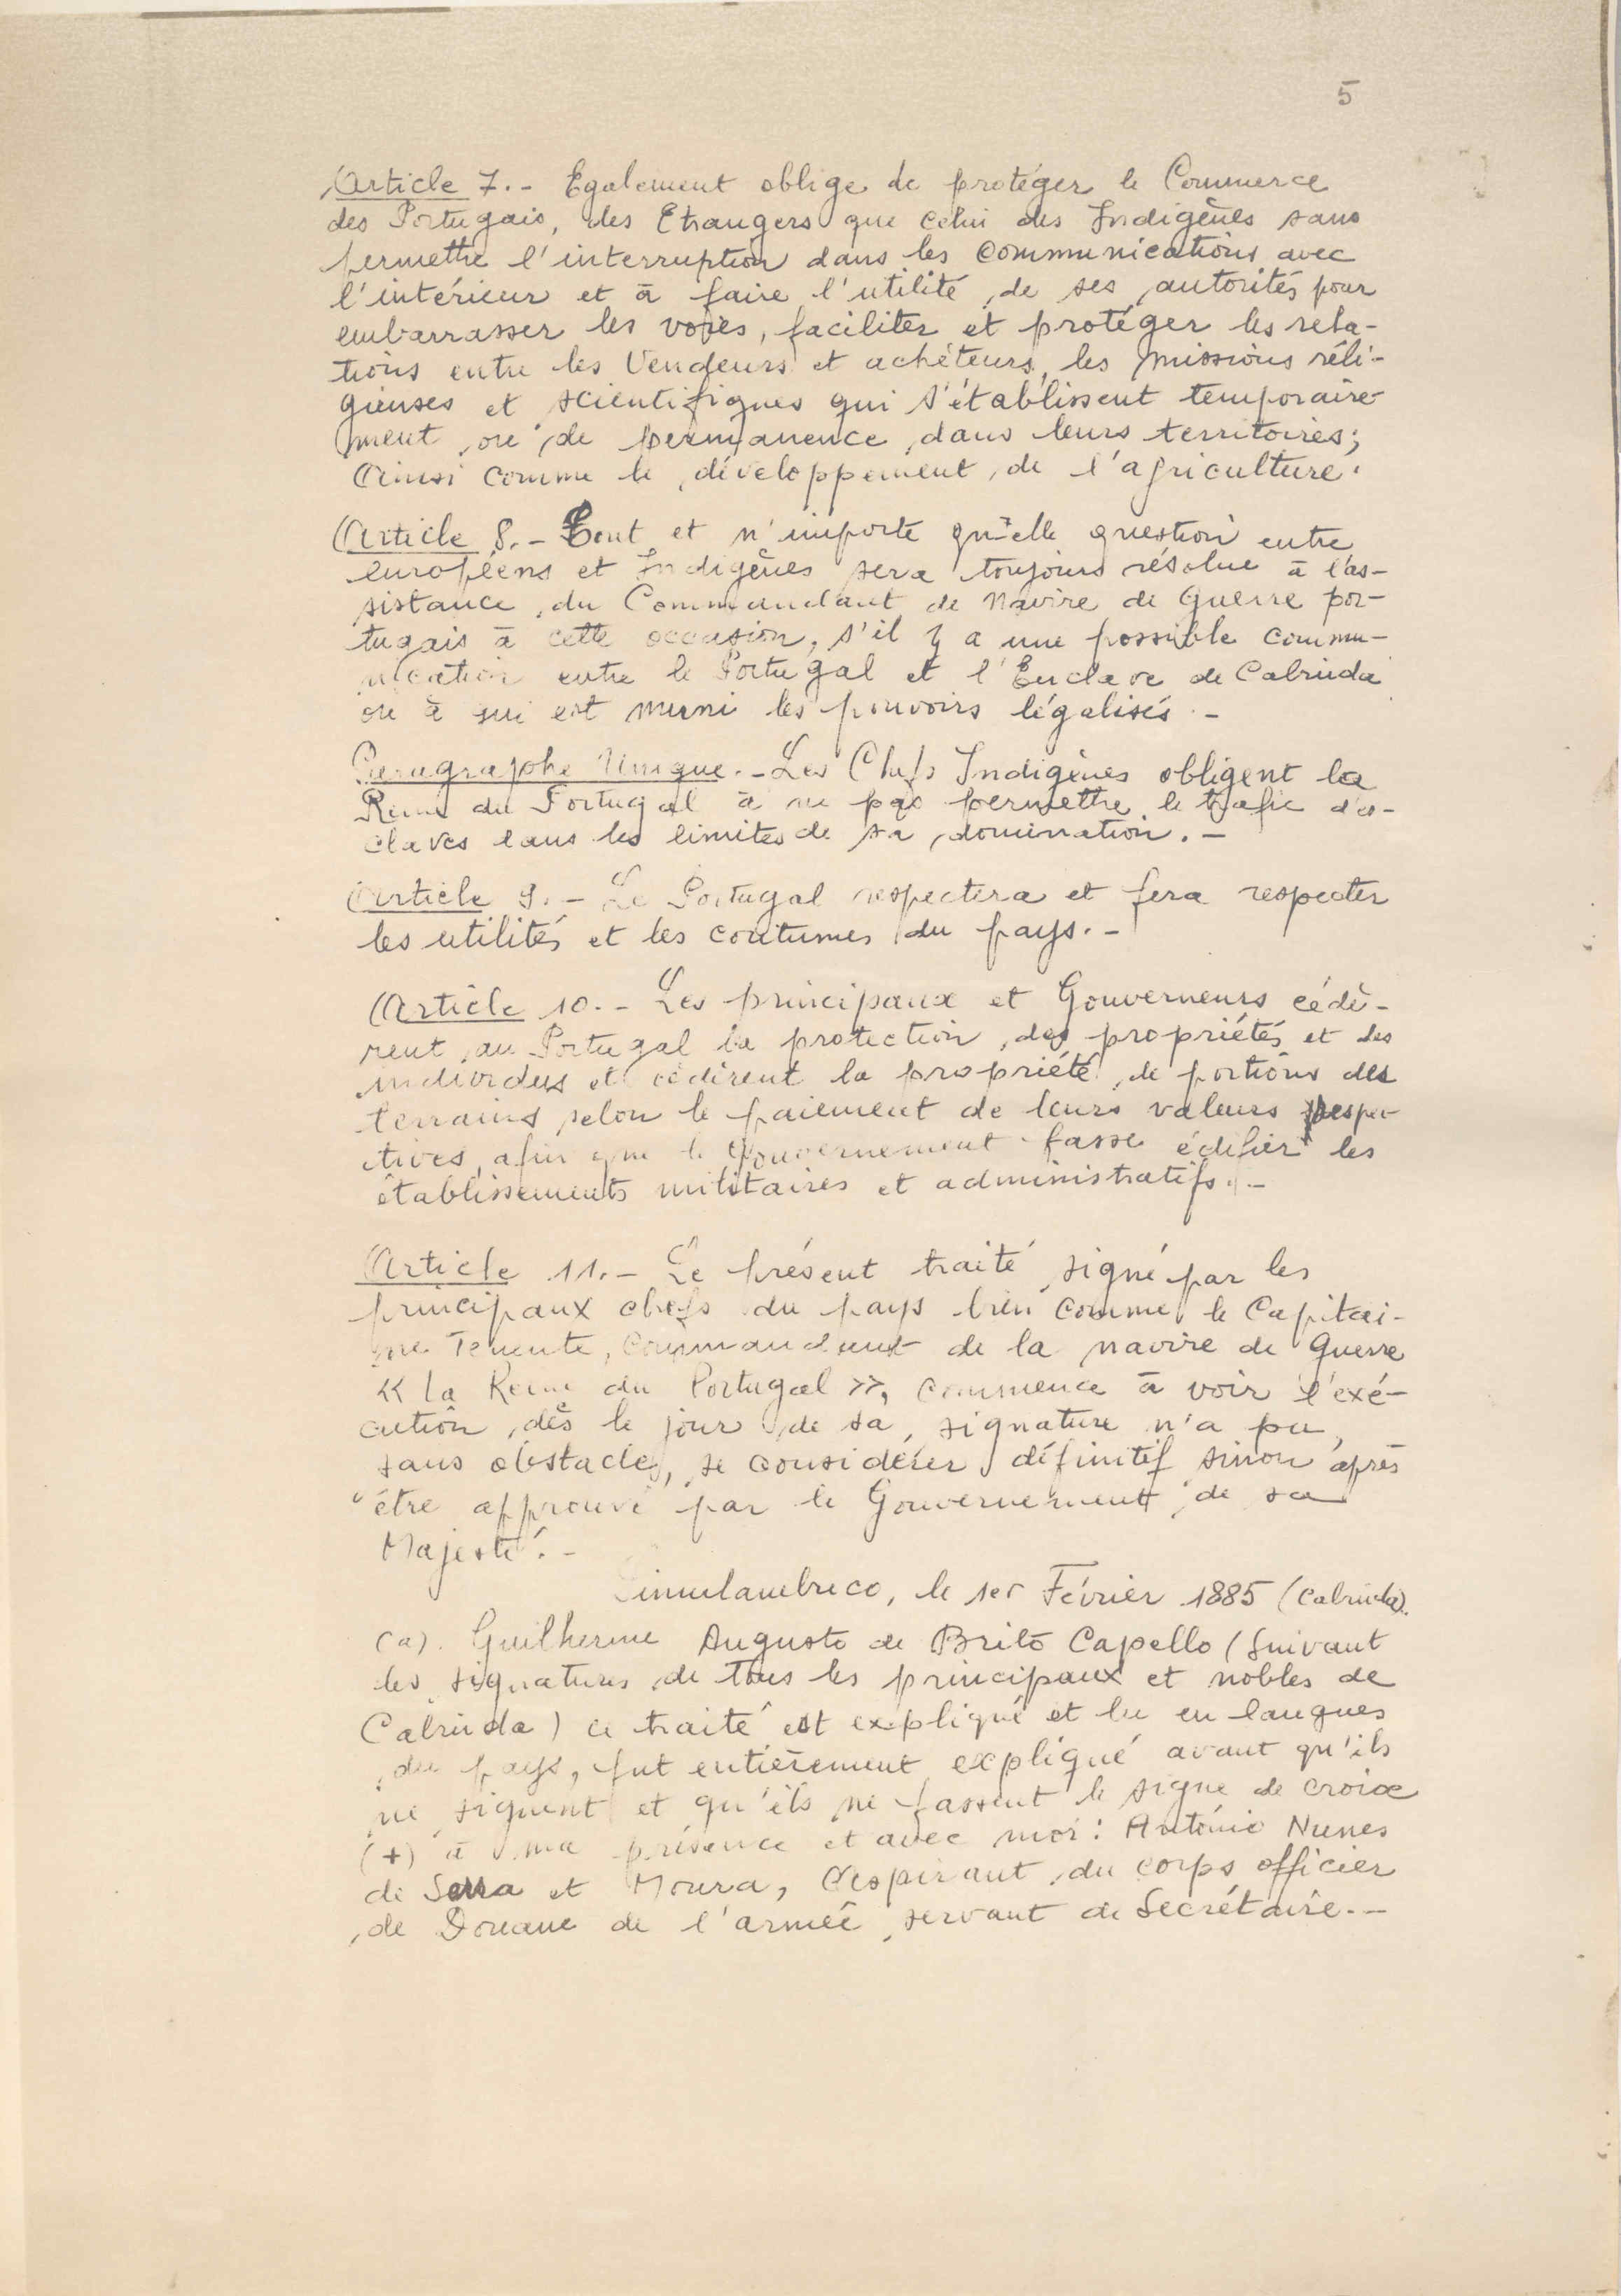 5
Article 7.- Egalement oblige de protéger le Commerce
des Portugais, des Etrangers que celui des Indigènes sans
permettre l'interruption dans les communications avec
l'intérieur et à faire l'utilité de ses autorités pour
embarrasser les voies, faciliter et protéger les rela-
tions entre les Vendeurs et achéteurs, les missions réli-
gieuses et scientifiques qui s'établissent temporaire-
ment ou de permanence dans leurs territoires;
Ainsi comme le développement de l'agriculture.
Article 8.- Tout et n'importe qu'elle question entre
européens et Indigènes sera toujours résolue à l'as-
sistance du Commandant de Navire de Guerre por-
tugais à cette occasion, s'il y a une possible commu-
nication entre le Portugal et l'Enclave de Cabinda
ou à qui est muni les pouvoirs légalisés.-
Paragraphe Unique.- Les Chefs Indigènes obligent la
Reine du Portugal à ne pas permettre le trafic d'es-
claves dans les limites de sa domination.-
Article 9.- Le Portugal respectera et fera respecter
les utilités et les coutumes du pays.-
Article 10.- Les principaux et Gouverneurs cédè-
rent au Portugal la protection des propriétés et des
individus et cédèrent la propriété de portions des
terrains selon le paiement de leurs valeurs respec-
tives, afin que le Gouvernement fasse édifier les
établissements militaires et administratifs.-
Article 11.- Le présent traité signé par les
principaux chefs du pays bien comme le Capitai-
ne Tenente, Commandant de la navire de Guerre
<< la Reine du Portugal >>, commence à voir l'exé-
cution dès le jour de sa signature n'a pu,
sans obstacle, se considérer définitif sinon après
être approuvé par le Gouvernement de sa
Majesté.-
Simulambuco, le 1er Février 1885 (Cabinda).
(a). Guilherme Augusto de Brito Capello (Suivant
les signatures de tous les principaux et nobles de
Cabinda) ce traité est expliqué et lu en langues
du pays, fut entièrement expliqué avant qu'ils
ne signent et qu'ils ne fassent le signe de croix
(+) à ma présence et avec moi: António Nunes
de Serra et Moura, Aspirant du corps officier
de Douane de l'armée servant de Secrétaire.-